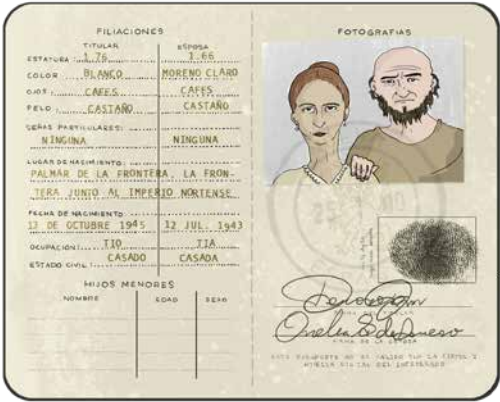 FILIACIONES
TITULAR ESPOSA
ESTATURA 1.76 1.66
COLOR BLANCO MORENO CLARO
OJOS: CAFES CAFES
PELO: CASTAÑO CASTAÑO
SEÑAS PARTICULARES:
NINGUNA NINGUNA
LUGAR DE NACIMIENTO:
PALMAR DE LA FRONTERA, LA FRON-
TERA JUNTO AL IMPERIO NORTENSE
FECHA DE NACIMIENTO
13 DE OCTUBRE 1945 12 JUL. 1943
OCUPACION: TIO TIA
ESTADO CIVIL: CASADO CASADA
HIJOS MENORES
NOMBRE EDAD SEXO
FOTOGRAFIAS
FIRMA DE LA ESPOSA
ESTE PASAPORTE NO ES VALIDO SIN LA FIRMA Y
HUELLA DIGITAL DEL INTERESADO